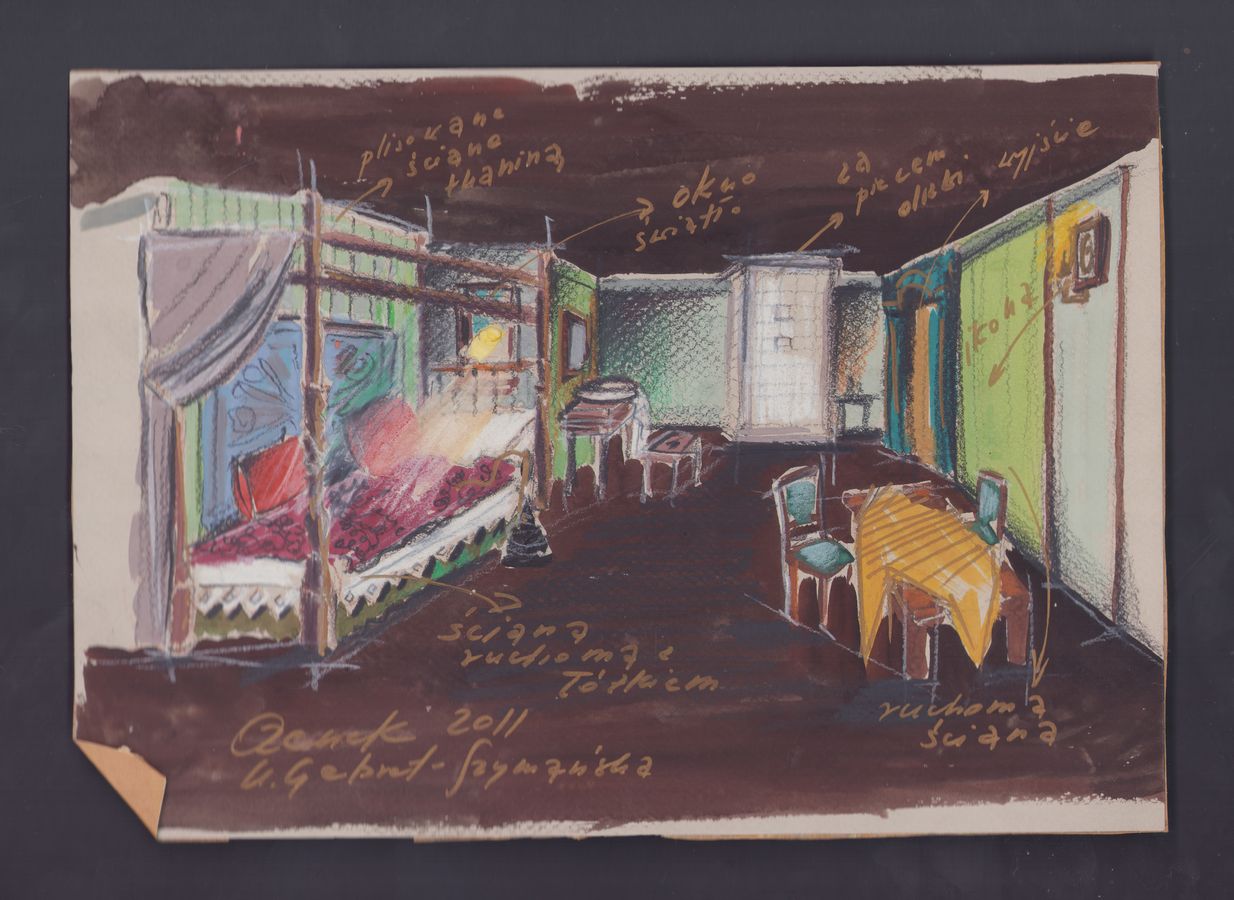 plisowane
ściane
tkaniną
okno
światło
za
piecem
wyjście
ikona
ściana
ruchoma z
łóżkiem
ruchoma
ściana
2011
Szymańska